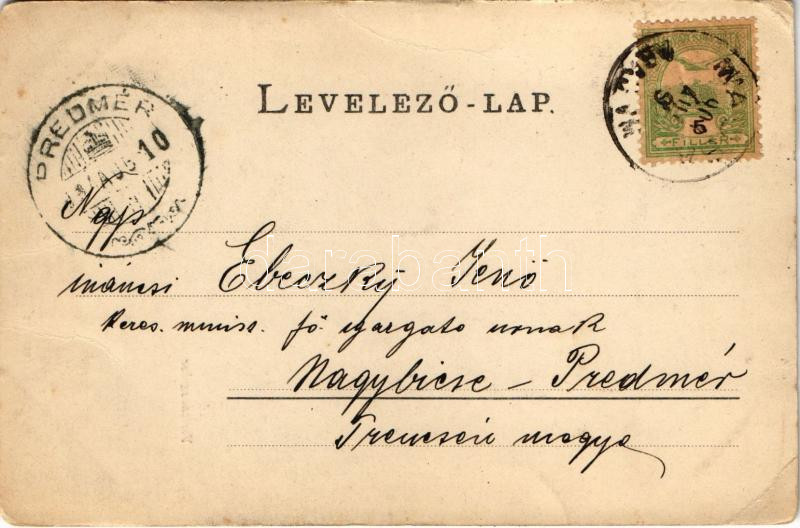 LEVELEZŐ-LAP.
PREDMÉR
AUG 10
FILLÉR
Ngys
máncsi Ebeczky Jenő
keres. minist. fő igazgató urnak
Nagybicse – Predmér
Trencsén megye
darabanth